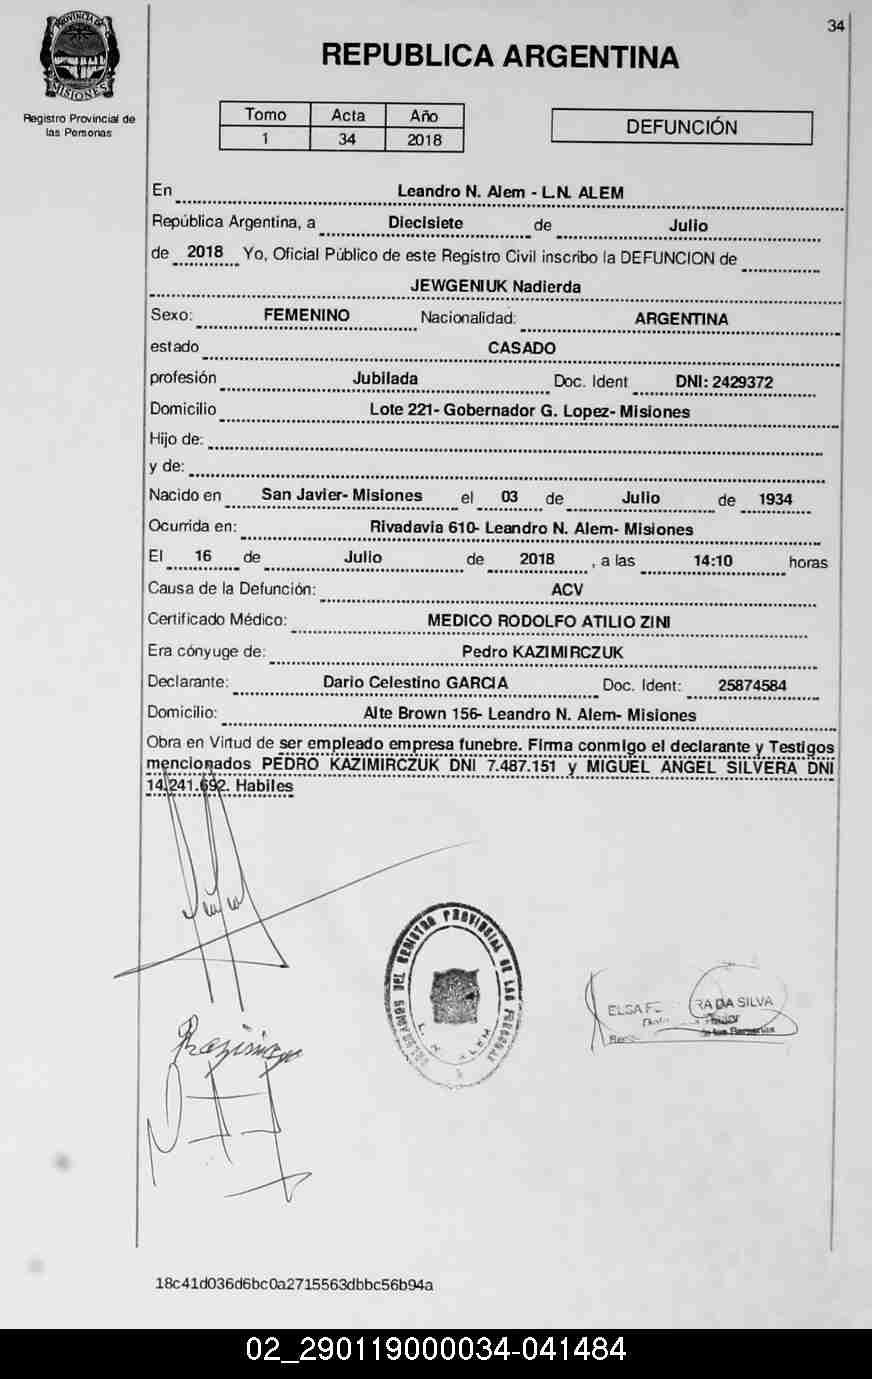 34
PROVINCIA DE
MISIONES
Registro Provincial de
las Personas
REPUBLICA ARGENTINA
Tomo Acta Año
1 34 2018
DEFUNCIÓN
En Leandro N. Alem - L.N. ALEM
República Argentina, a Diecisiete de Julio
de 2018 Yo, Oficial Público de este Registro Civil inscribo la DEFUNCION de
JEWGENIUK Nadierda
Sexo: FEMENINO Nacionalidad: ARGENTINA
estado CASADO
profesión Jubilada Doc. Ident DNI: 2429372
Domicilio Lote 221- Gobernador G. Lopez- Misiones
Hijo de:
y de:
Nacido en San Javier- Misiones el 03 de Julio de 1934
Ocurrida en: Rivadavia 610- Leandro N. Alem- Misiones
El 16 de Julio de 2018 , a las 14:10 horas
Causa de la Defunción: ACV
Certificado Médico: MEDICO RODOLFO ATILIO ZINI
Era cónyuge de: Pedro KAZIMIRCZUK
Declarante: Dario Celestino GARCIA Doc. Ident: 25874584
Domicilio: Alte Brown 156- Leandro N. Alem- Misiones
Obra en Virtud de ser empleado empresa funebre. Firma conmigo el declarante y Testigos
mencionados PEDRO KAZIMIRCZUK DNI 7.487.151 y MIGUEL ANGEL SILVERA DNI
14.241.692. Habiles
DEL REGISTRO PROVINCIAL DE LAS PERSONAS
L. N. ALEM
ELSA DA SILVA
de las Personas
18c41d036d6bc0a2715563dbbc56b94a
02_290119000034-041484